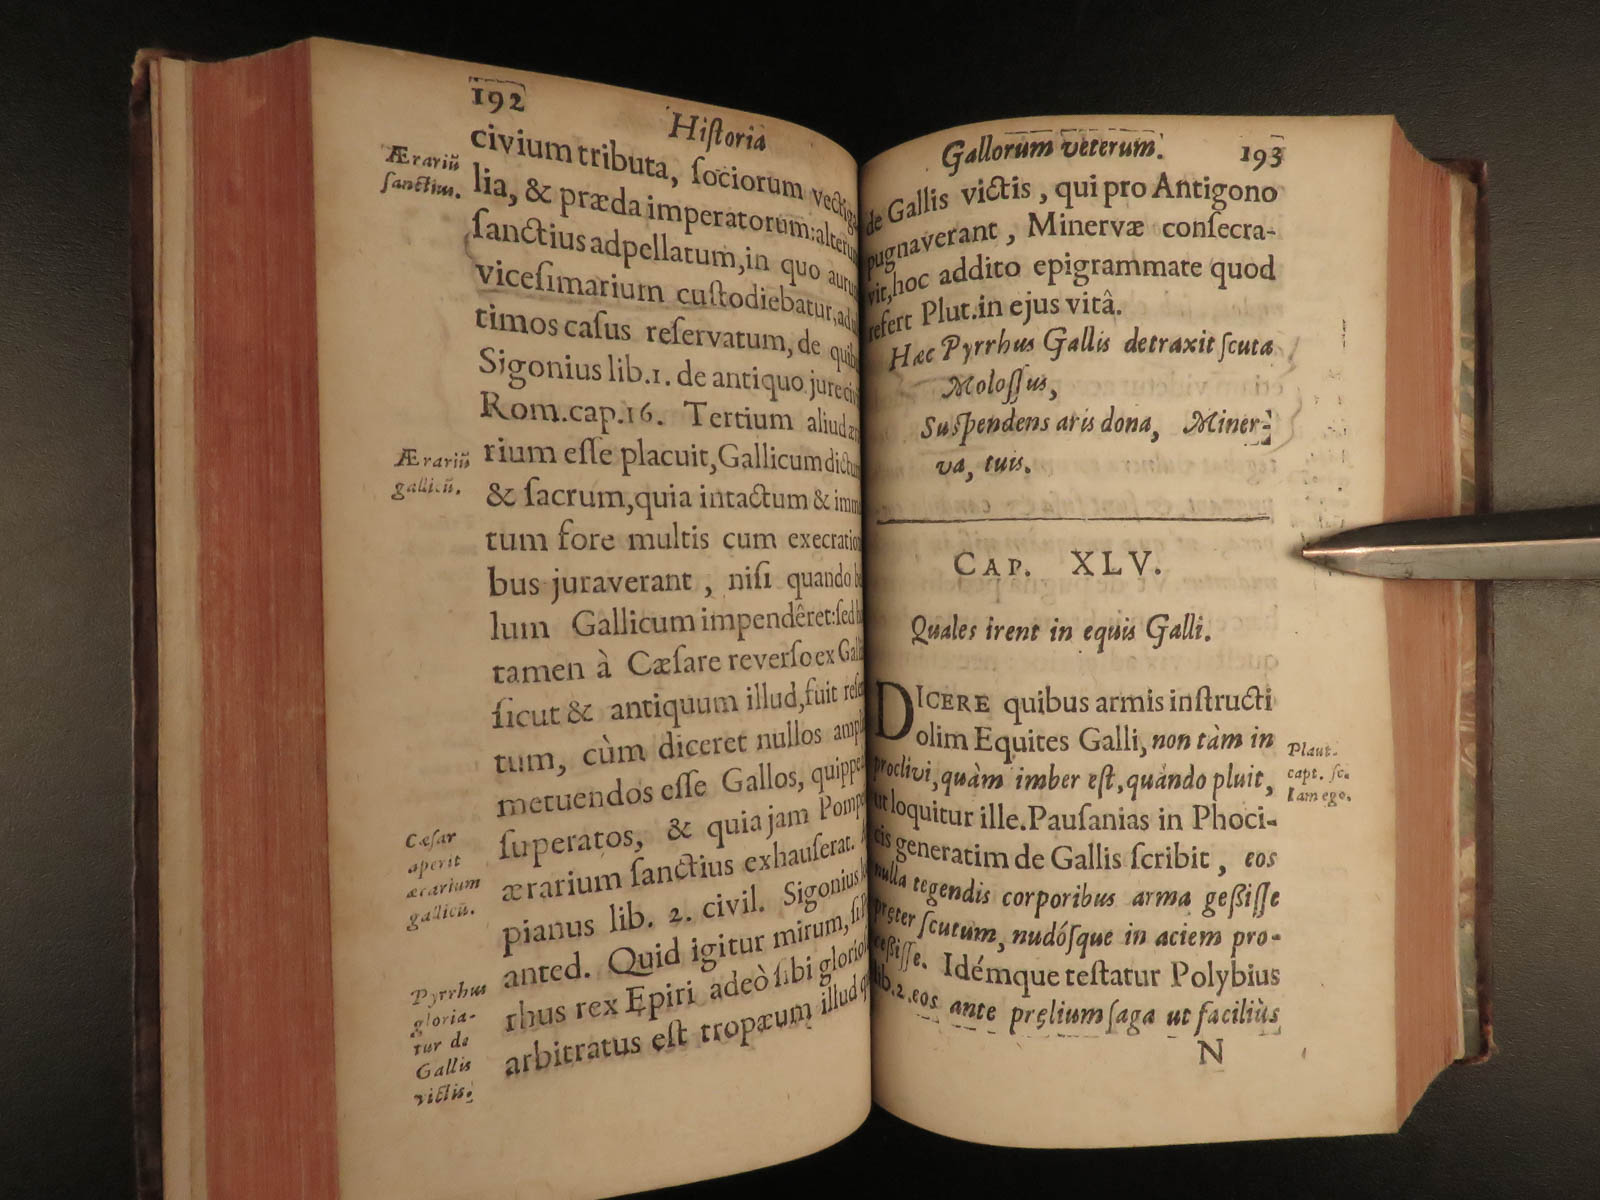 192
Hiſtoria
civium tributa, ſociorum vectiga
lia, & præda imperatorum: alterum
ſanctius adpellatum, in quo aurum
viceſimarium cuſtodiebatur, ad ul
timos caſus reſervatum, de quibus
Sigonius lib. 1. de antiquo jure civ.
Rom. cap. 16. Tertium aliud æra
rium eſſe placuit, Gallicum dictum
& ſacrum, quia intactum & immo
tum fore multis cum execrationi
bus juraverant, niſi quando bel
lum Gallicum impendêret: ſed
tamen à Cæſare reverſo ex Gallia
ſicut & antiquum illud, fuit reſera
tum, cùm diceret nullos ampliùs
metuendos eſſe Gallos, quippe
ſuperatos, & quia jam Pompe
ærarium ſanctius exhauſerat.
pianus lib. 2. civil. Sigonius
anted. Quid igitur mirum, ſi
rhus rex Epiri adeò ſibi glorioſ
arbitratus eſt tropæum illud
Ærariũ
ſanctius.
Ærariũ
gallicũ.
Cæſar
aperit
ærarium
gallicũ.
Pyrrhus
gloria-
tur de
Gallis
victis.
Gallorum veterum. 193
de Gallis victis, qui pro Antigono
pugnaverant, Minervæ conſecra-
vit, hoc addito epigrammate quod
refert Plut. in ejus vitâ.
Hæc Pyrrhus Gallis detraxit ſcuta
Moloſſus,
Suſpendens aris dona, Miner-
va, tuis.
CAP. XLV.
Quales irent in equis Galli.
DICERE quibus armis inſtructi
olim Equites Galli, non tàm in
proclivi, quàm imber eſt, quando pluit,
ut loquitur ille. Pauſanias in Phoci-
cis generatim de Gallis ſcribit, eos
nulla tegendis corporibus arma geßiſſe
pręter ſcutum, nudóſque in aciem pro-
ceßiſſe. Idémque teſtatur Polybius
lib. 2. eos ante pręlium ſaga ut faciliùs
Plaut.
capt. ſc.
Iam ego.
N